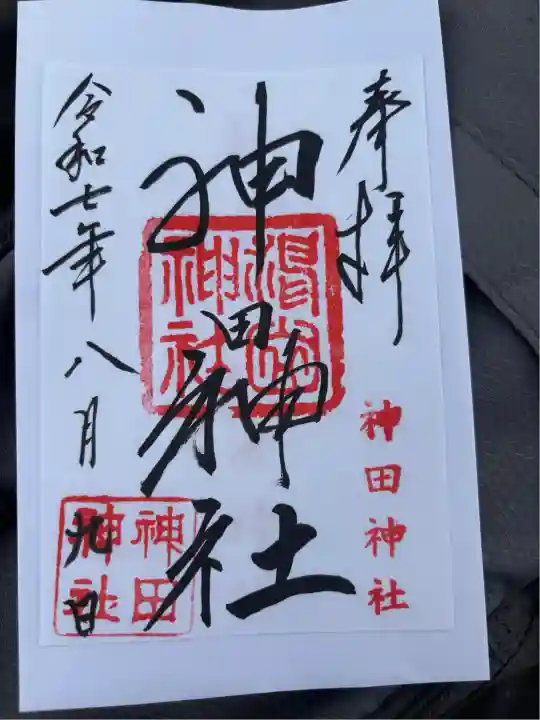 奉拝
神田神社
神田神社
令和七年八月九日
神田
神社